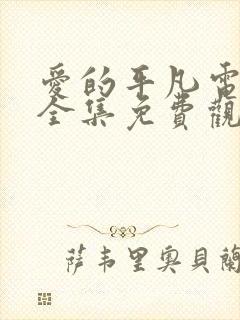 愛的平凡電
全集免費觀
萨韦里奥貝蘭